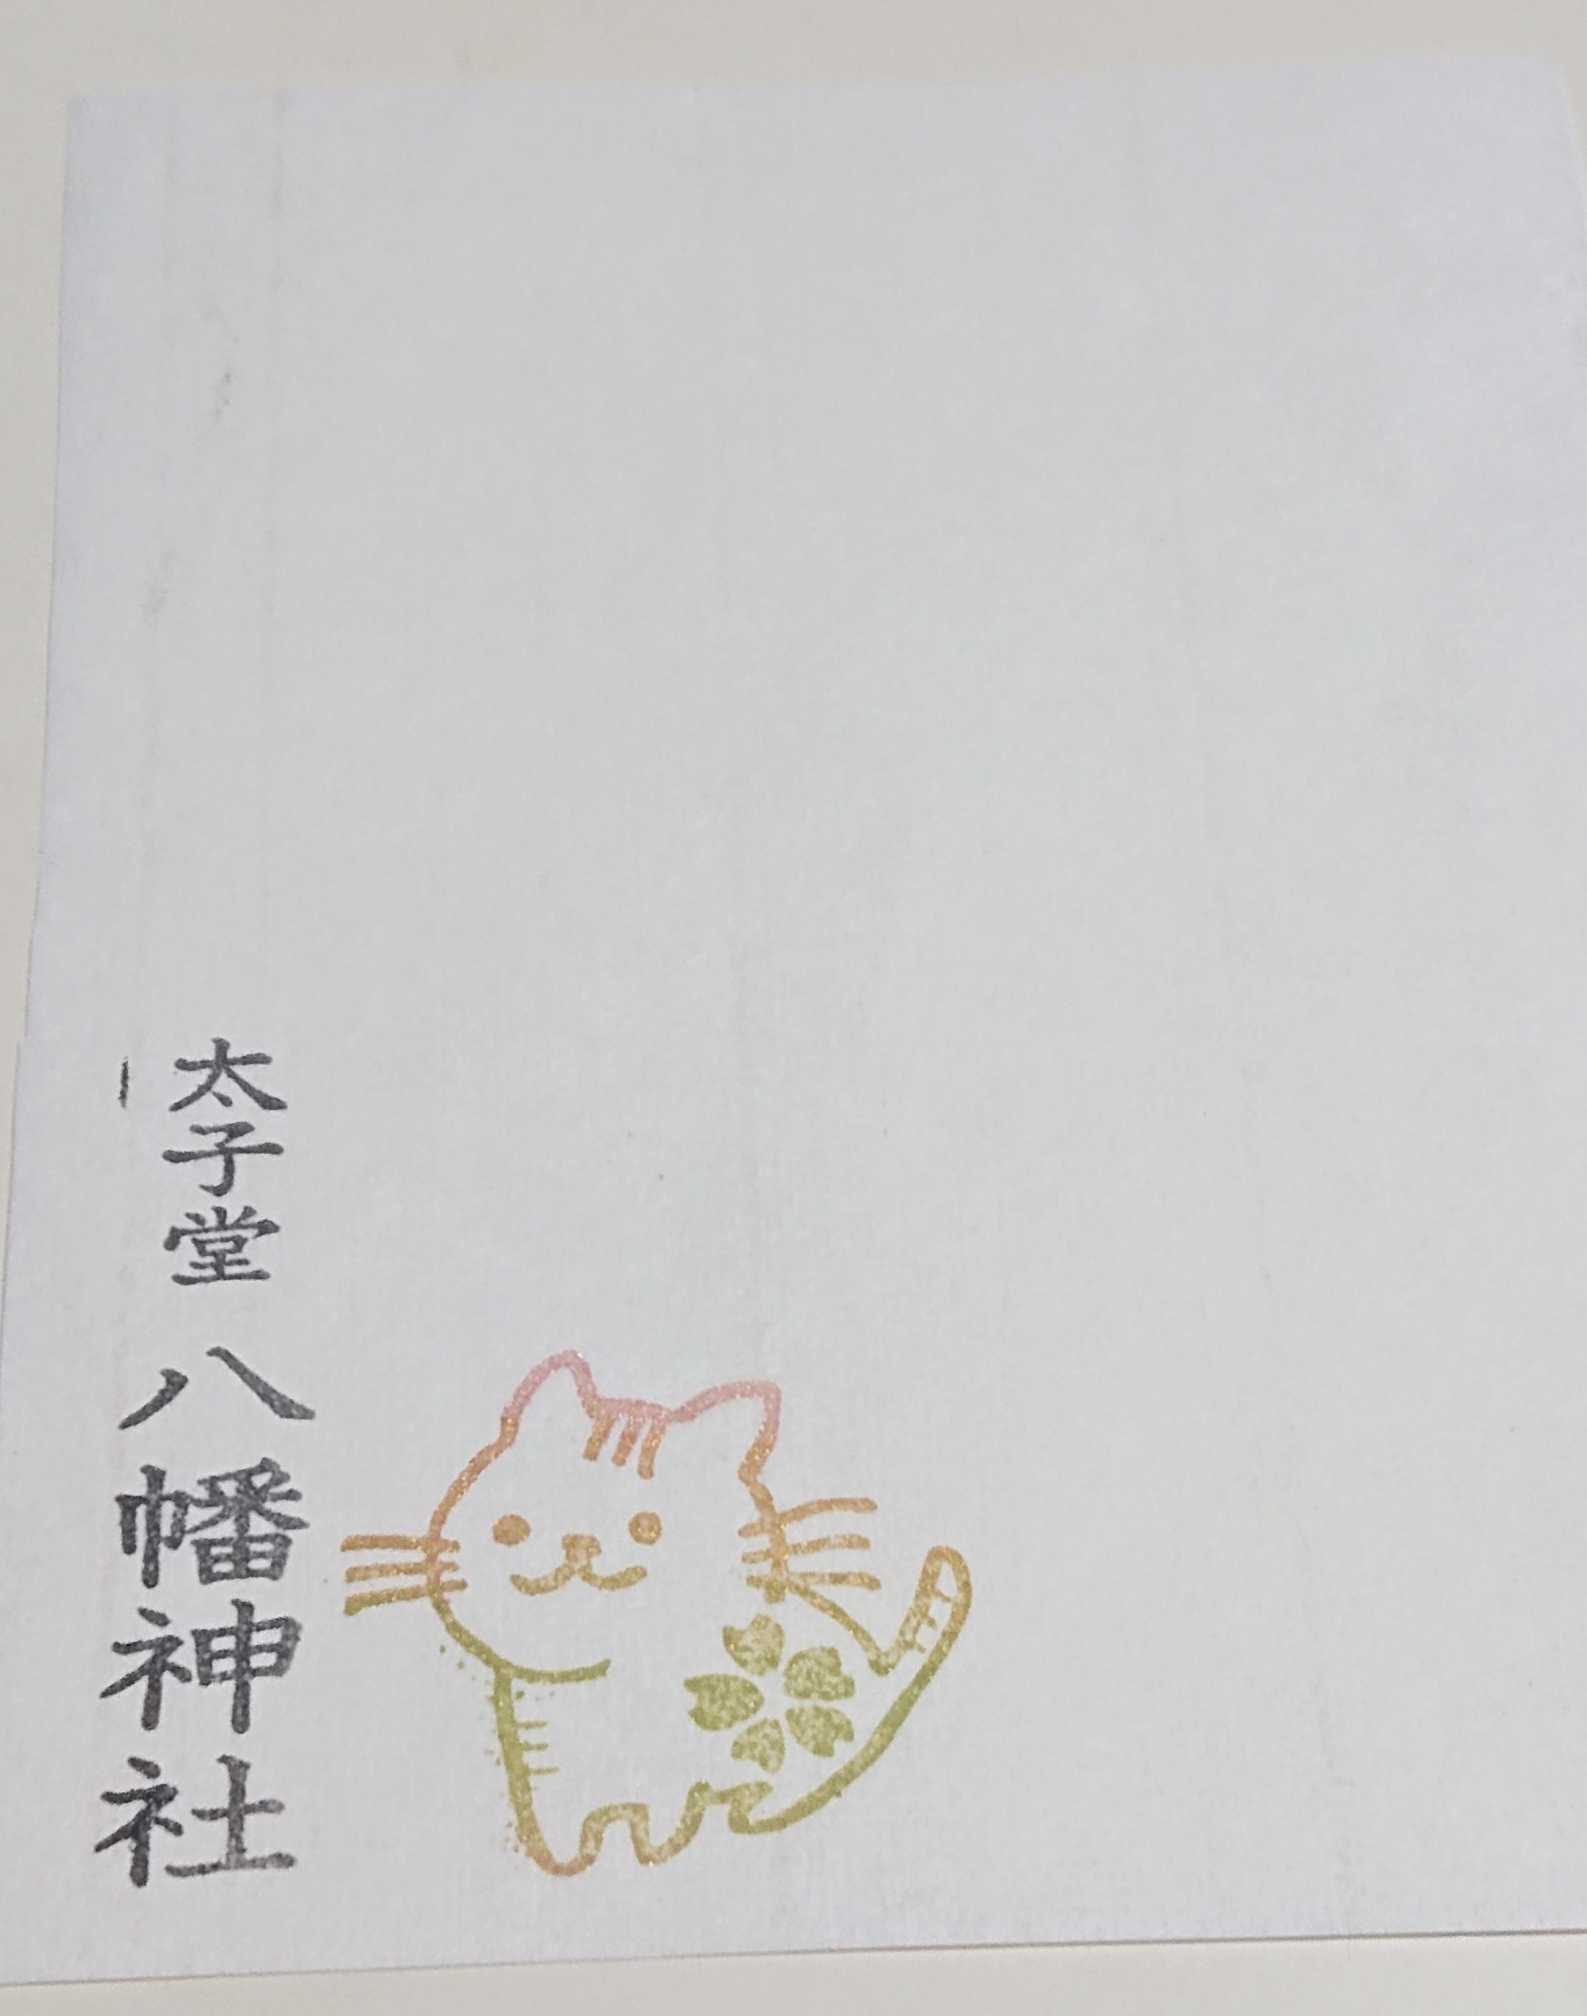 太子堂 八幡神社